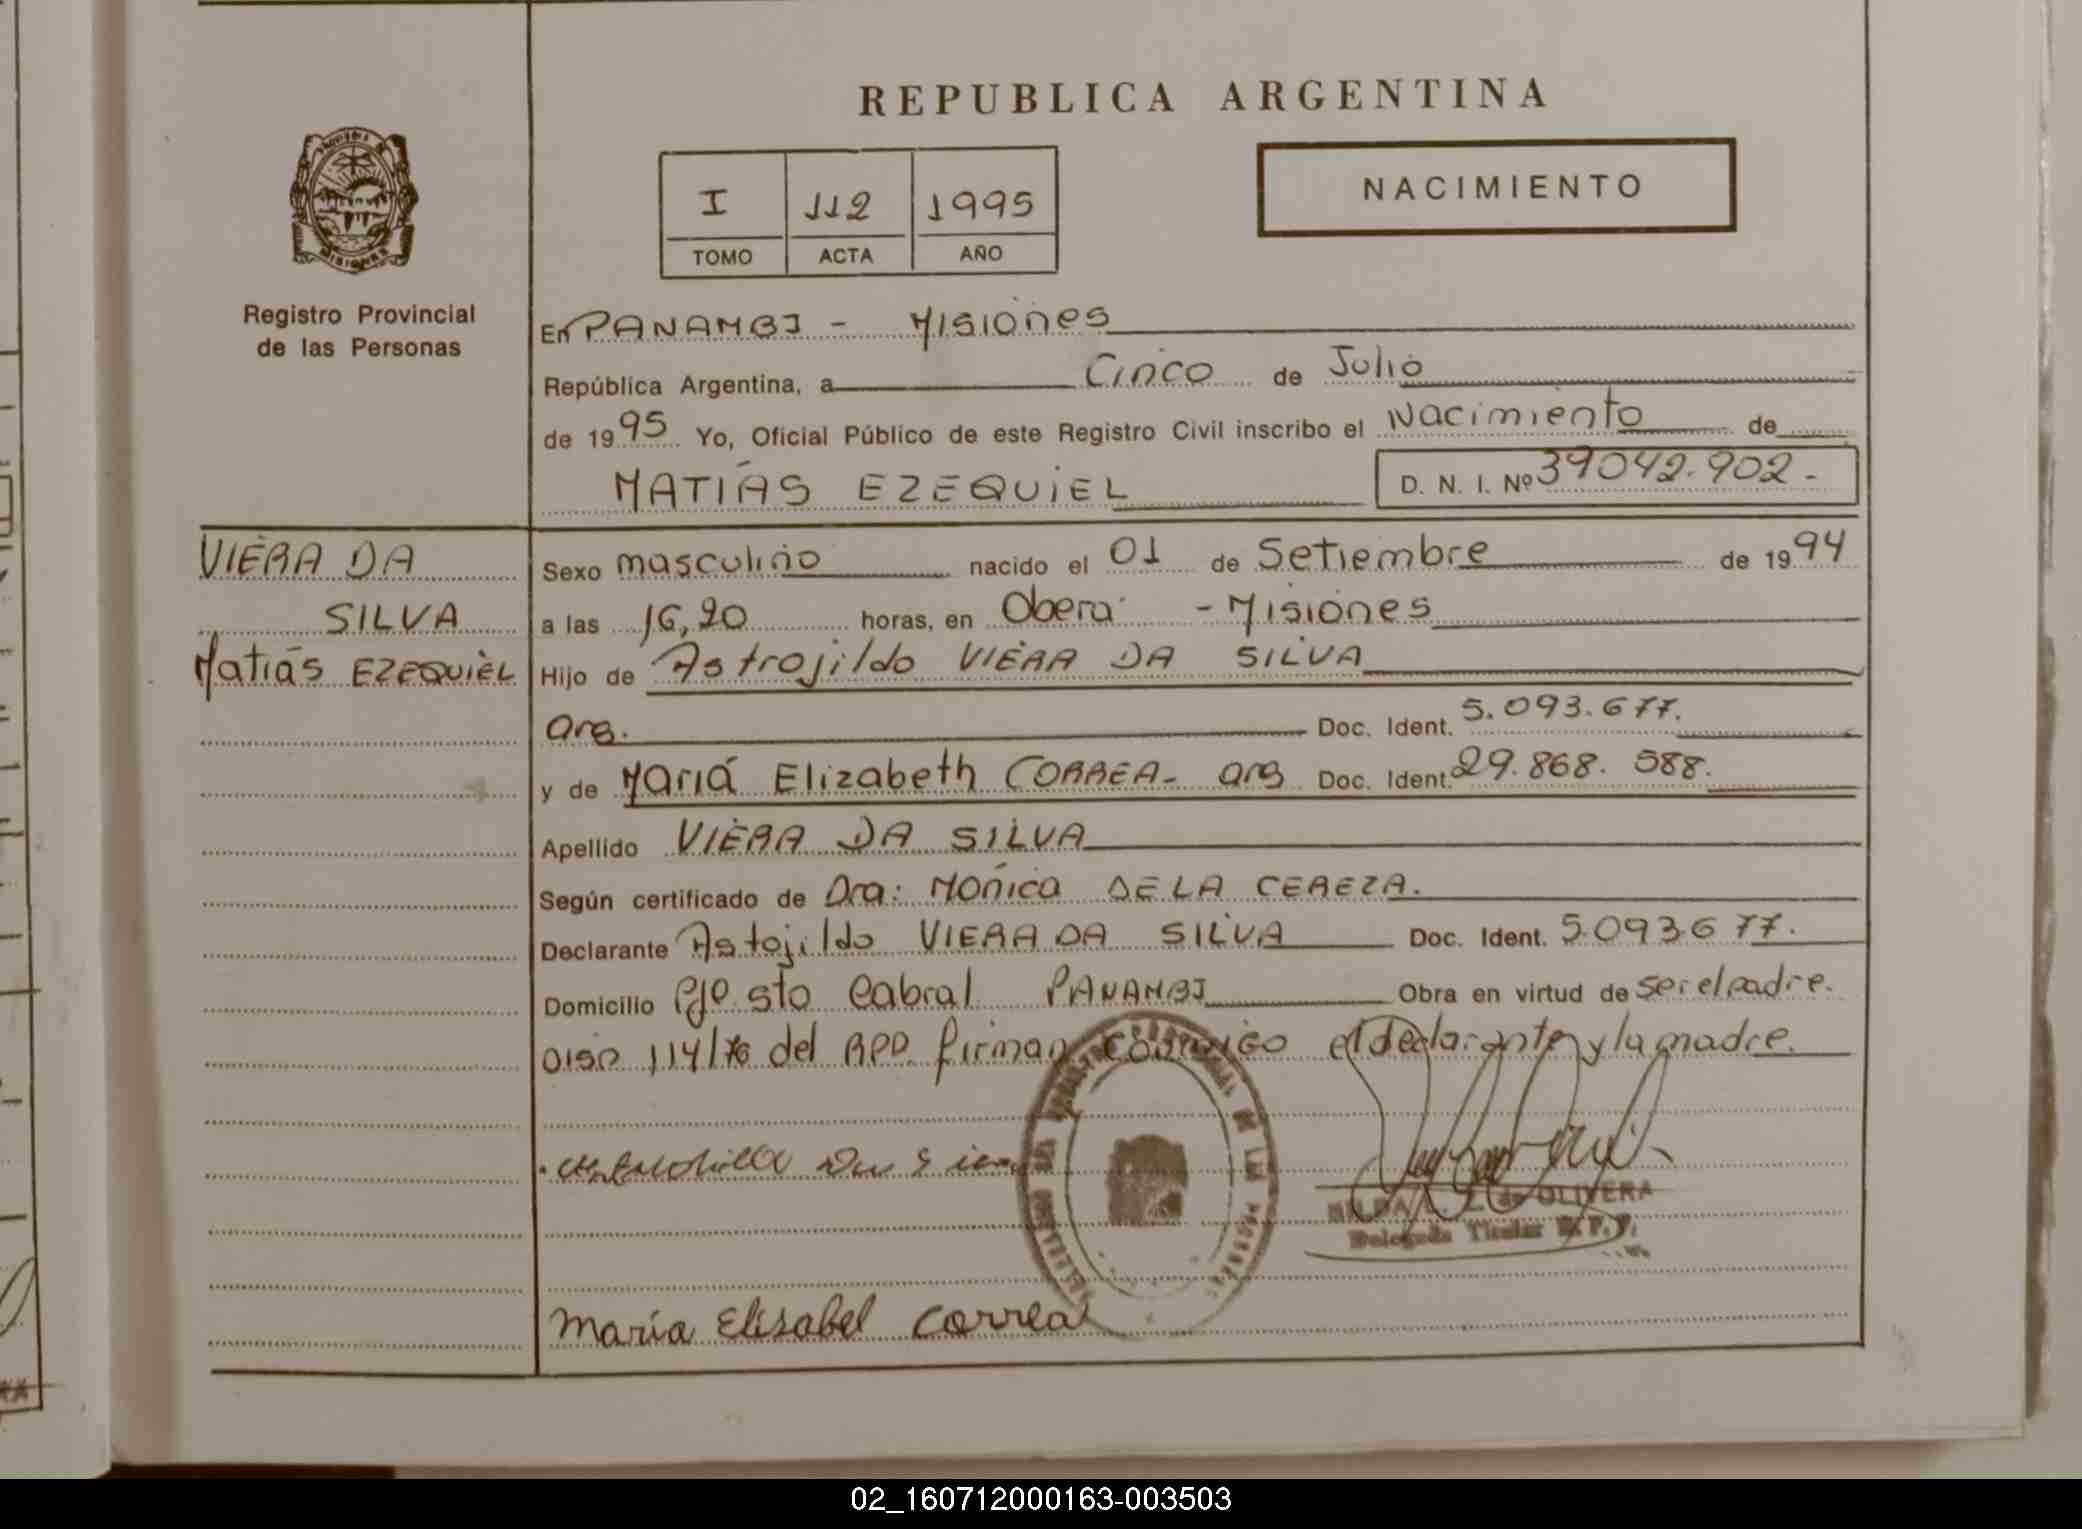 REPUBLICA ARGENTINA
I 112 1995
TOMO ACTA AÑO
NACIMIENTO
Registro Provincial
de las Personas
En PANAMBI - MISIONES
República Argentina, a Cinco de Julio
de 1995 Yo, Oficial Público de este Registro Civil inscribo el Nacimiento de
MATIAS EZEQUIEL D. N. I. Nº 39042.902.-
VIERA DA
SILVA
Matiás EZEQUIEL
Sexo masculino nacido el 01 de Setiembre de 1994
a las 16,20 horas, en Oberá - MISIONES
Hijo de Astrojildo VIERA DA SILVA
arg. Doc. Ident. 5.093.677.
y de Mariá Elizabeth CORREA- arg Doc. Ident. 29.868.588.
Apellido VIERA DA SILVA
Según certificado de Dra: MONICA DE LA CEREZA.
Declarante Astojildo VIERA DA SILVA Doc. Ident. 5.093677.
Domicilio Pje sto Cabral PANAMBI Obra en virtud de ser el padre.
DISP 114/76 del RPP. firman conmigo el declarante y la madre.
de OLIVERA
Delegada Titular R. P. P.
maría Elisabel Correa
02_160712000163-003503